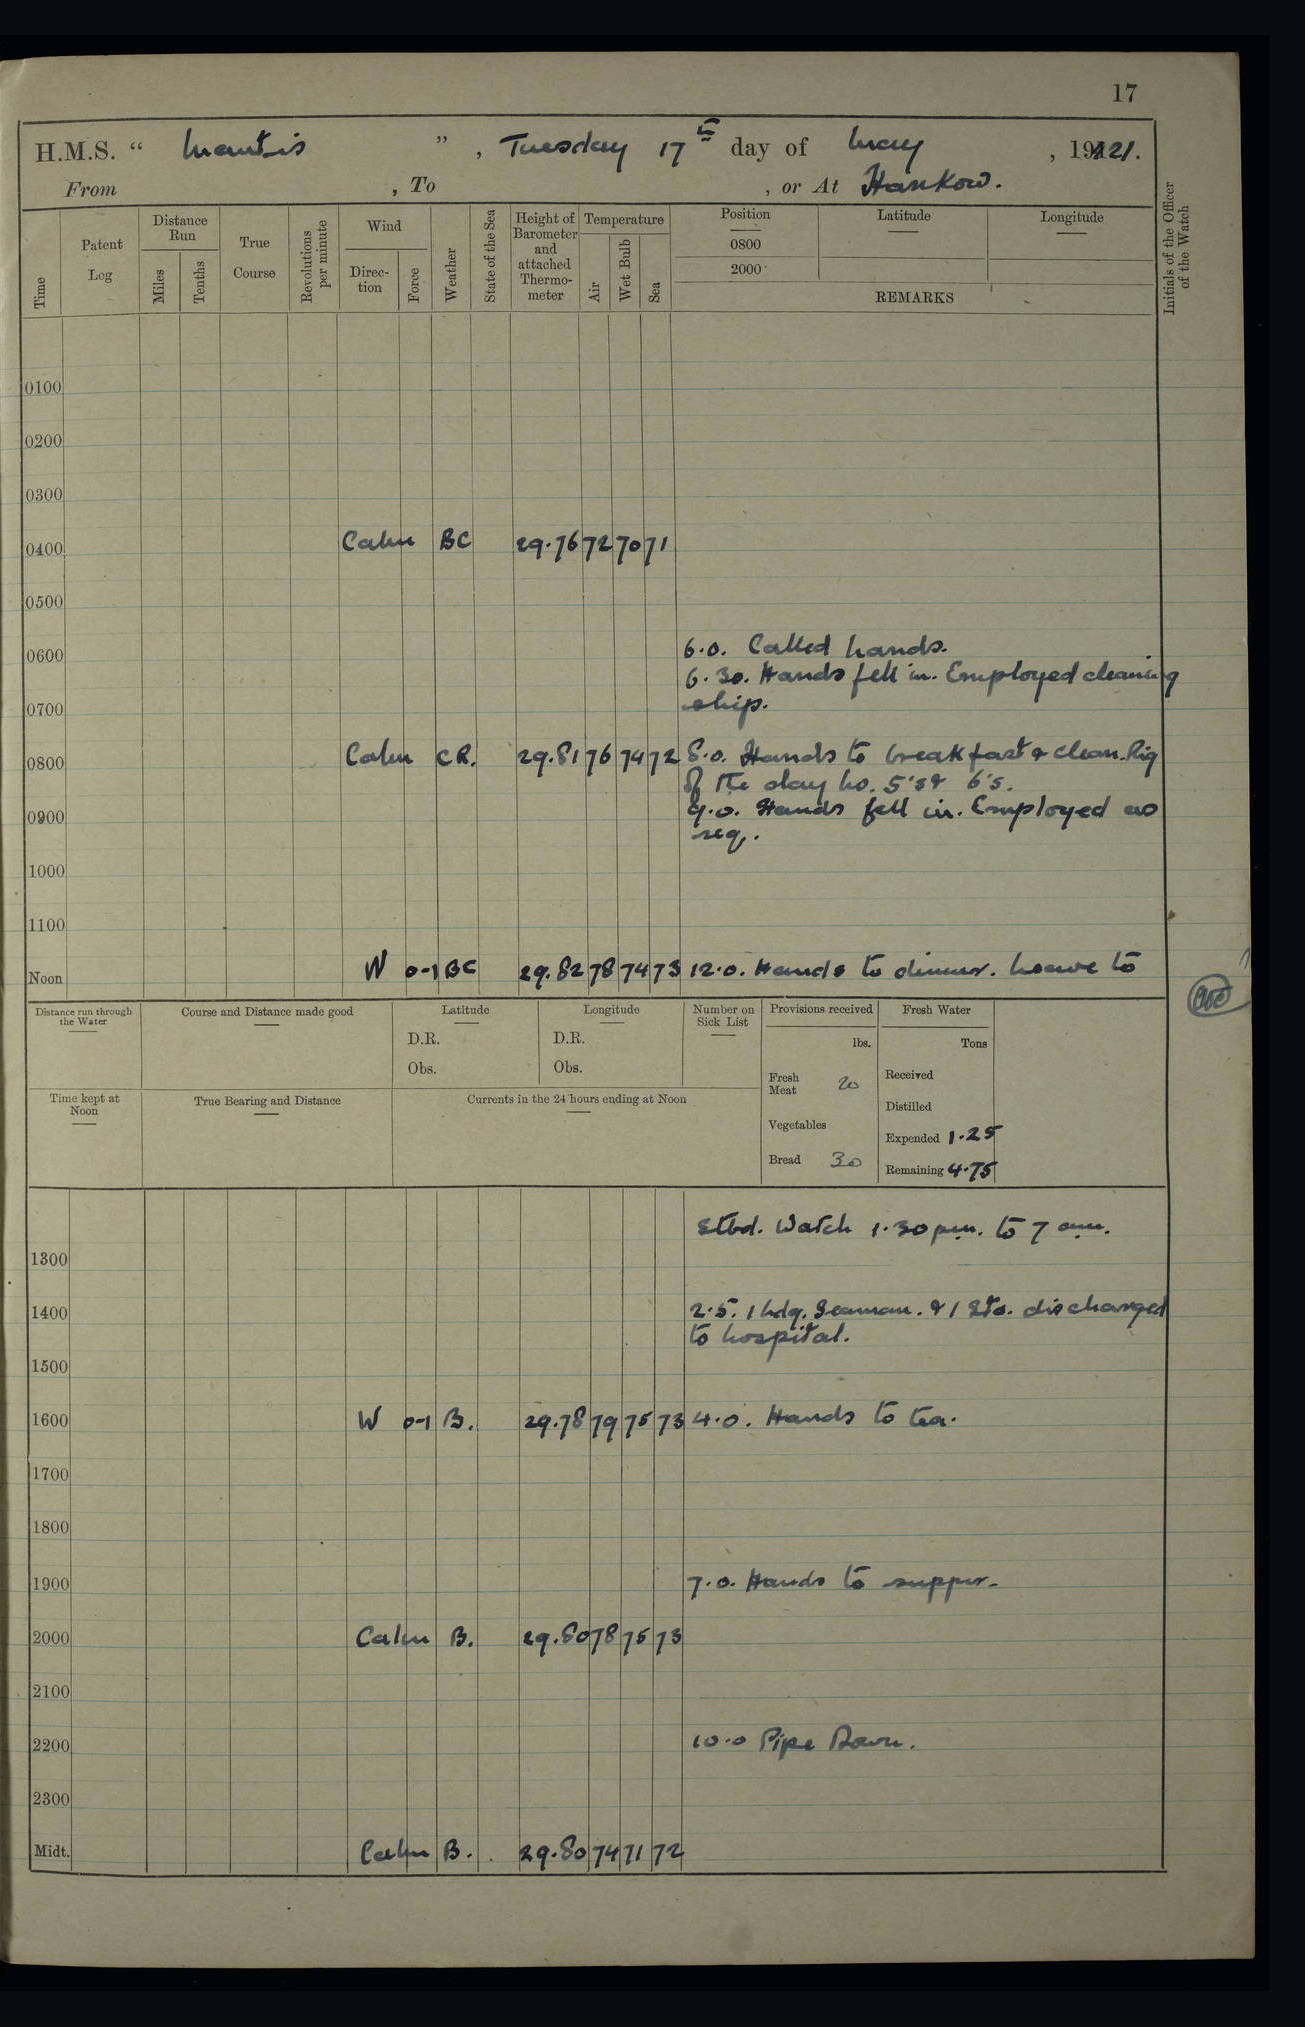 17
H.M.S. “ Mantis ”, Tuesday 17th day of May, 1921.
From , To , or At Hankow.
Time
Patent Log
Distance Run
Miles
Tenths
True Course
Revolutions per minute
Wind
Direc-tion
Force
Weather
State of the Sea
Height of Barometer and attached Thermo-meter
Temperature
Air
Wet Bulb
Sea
Position
0800
2000
Latitude
Longitude
REMARKS
Initials of the Officer of the Watch
0100
0200
0300
0400 Calm BC 29.76 72 70 71
0500
0600 6.0. Called hands.
6.30. Hands fell in. Employed cleaning
0700 ship.
0800 Calm CR. 29.81 76 74 72 8.0. Hands to breakfast & clean. Rig
of the day No. 5's & 6's.
0900 9.0. Hands fell in. Employed as
req.
1000
1100
Noon W 0-1 BC 29.82 78 74 73 12.0. Hands to dinner. Leave to
Distance run through the Water
Course and Distance made good
Latitude
D.R.
Obs.
Longitude
D.R.
Obs.
Number on Sick List
Provisions received
lbs.
Fresh Meat 20
Vegetables
Bread 30
Fresh Water
Tons
Received
Distilled
Expended 1.25
Remaining 4.75
Time kept at Noon
True Bearing and Distance
Currents in the 24 hours ending at Noon
Stbd. Watch 1.30 p.m. to 7 a.m.
1300
1400 2.5. 1 Ldg. Seaman. & 1 Sto. discharged
to hospital.
1500
1600 W 0-1 B. 29.78 79 75 73 4.0. Hands to tea.
1700
1800
1900 7.0. Hands to supper.
2000 Calm B. 29.80 78 75 73
2100
2200 10.0 Pipe Down.
2300
Midt. Calm B. 29.80 74 71 72